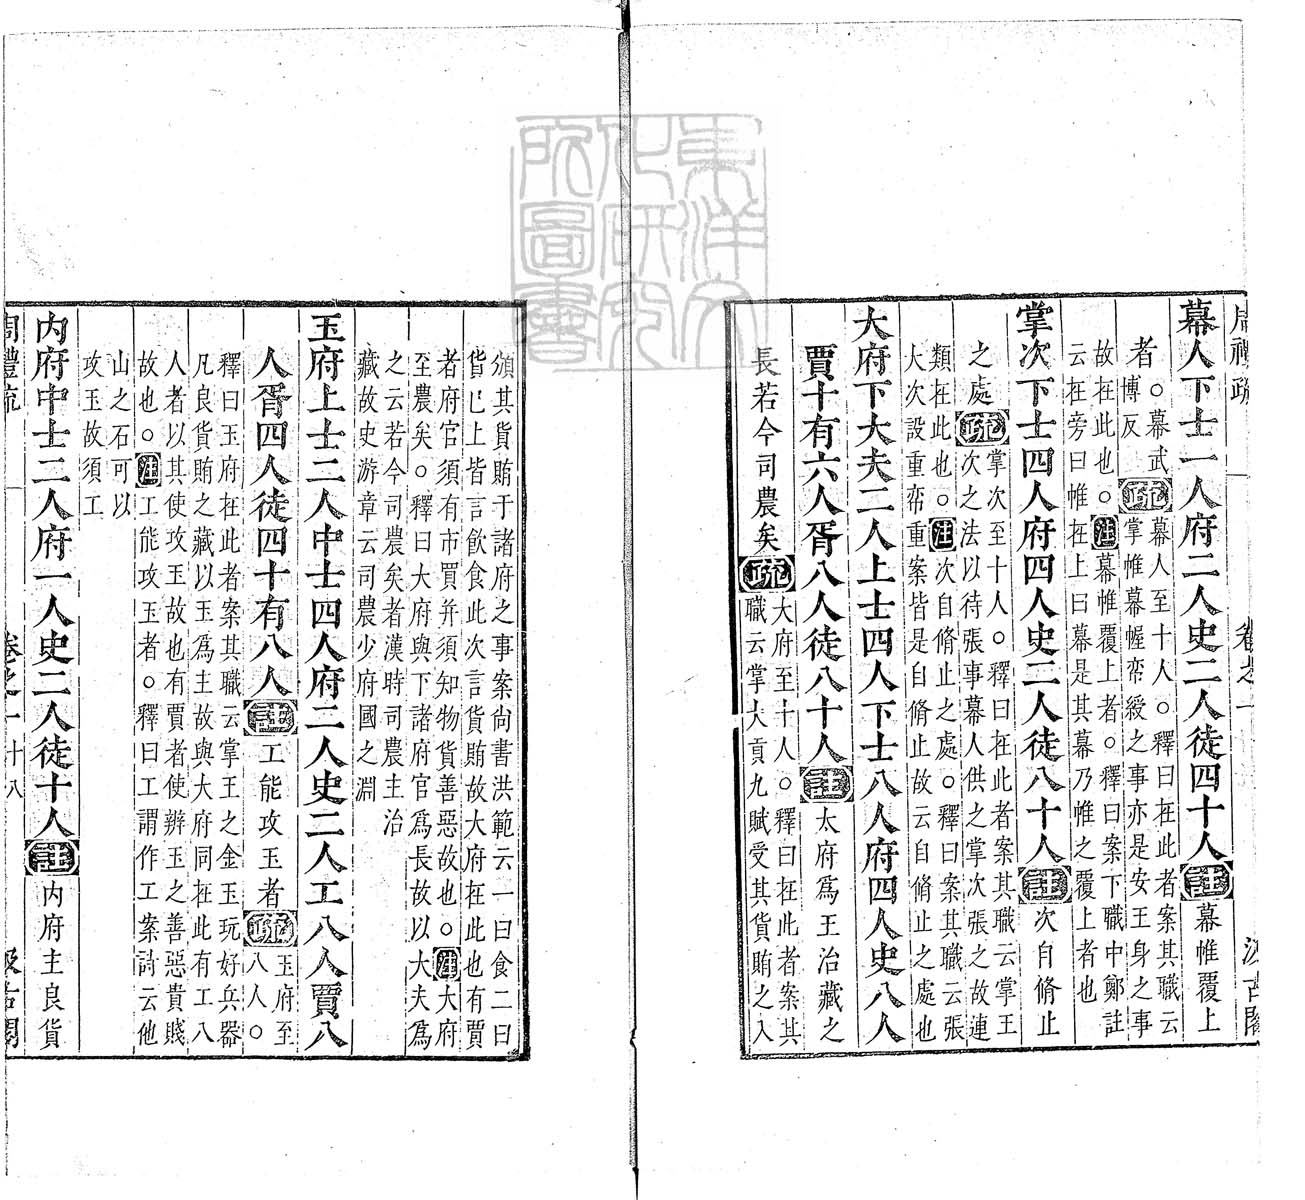 周禮疏 卷之一 汲古閣
幕人下士一人府二人史二人徒四十人註幕帷覆上
者○幕武
博反疏幕人至十人○釋曰在此者案其職云
掌帷幕幄帟綬之事亦是安王身之事
故在此也○注幕帷覆上者○釋曰案下職中鄭註
云在旁曰帷在上曰幕是其幕乃帷之覆上者也
掌次下士四人府四人史二人徒八十人註次自脩止
之處疏掌次至十人○釋曰在此者案其職云掌王
次之法以待張事幕人供之掌次張之故連
類在此也○注次自脩止之處○釋曰案其職云張
大次設重帟重案皆是自脩止故云自脩止之處也
大府下大夫二人上士四人下士八人府四人史八人
賈十有六人胥八人徒八十人註太府爲王治藏之
長若今司農矣疏大府至十人○釋曰在此者案其
職云掌大貢九賦受其貨賄之入
頒其貨賄于諸府之事案尙書洪範云一曰食二曰
貨已上皆言飲食此次言貨賄故大府在此也有賈
者府官須有市買并須知物貨善惡故也○注大府
至農矣○釋曰大府與下諸府官爲長故以大夫爲
之云若今司農矣者漢時司農主治
藏故史游章云司農少府國之淵
玉府上士二人中士四人府二人史二人工八人賈八
人胥四人徒四十有八人註工能攻玉者疏玉府至
八人○
釋曰玉府在此者案其職云掌王之金玉玩好兵器
凡良貨賄之藏以玉爲主故與大府同在此有工八
人者以其使攻玉故也有賈者使辨玉之善惡貴賤
故也○注工能攻玉者○釋曰工謂作工案詩云他
山之石可以
攻玉故須工
內府中士二人府一人史二人徒十人註內府主良貨
周禮疏 卷之一 十八 汲古閣
東洋文化研究所圖書